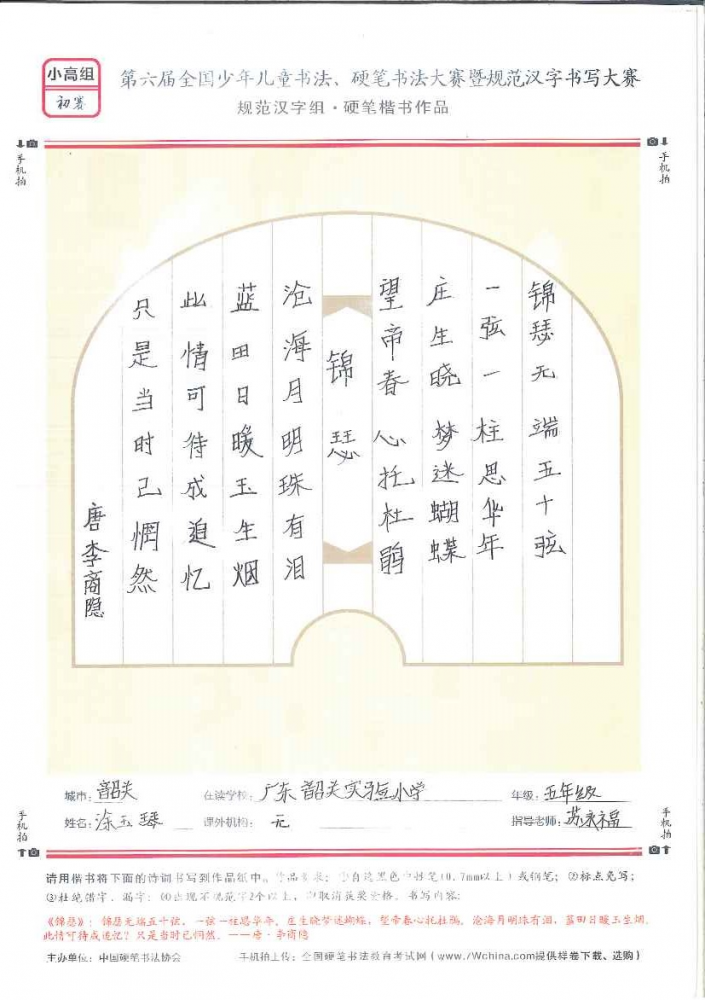 小高组
初赛
第六届全国少年儿童书法、硬笔书法大赛暨规范汉字书写大赛
规范汉字组·硬笔楷书作品
手机拍
手机拍
锦瑟无端五十弦
一弦一柱思华年
庄生晓梦迷蝴蝶
望帝春心托杜鹃
锦瑟
沧海月明珠有泪
蓝田日暖玉生烟
此情可待成追忆
只是当时己惘然
唐李商隐
城市：韶关 在读学校：广东韶关实验小学 年级：五年级
姓名：涂玉琴 课外机构：无 指导老师：苏永福
手机拍
手机拍
请用楷书将下面的诗词书写到作品纸中。作品要求：①自选黑色中性笔(0.7mm以上)或钢笔；②标点免写；
③杜绝错字、漏字；④出现不规范字2个以上，即取消获奖资格。书写内容：
《锦瑟》：锦瑟无端五十弦，一弦一柱思华年。庄生晓梦迷蝴蝶，望帝春心托杜鹃。沧海月明珠有泪，蓝田日暖玉生烟。
此情可待成追忆？只是当时已惘然。——唐·李商隐
主办单位：中国硬笔书法协会 手机拍上传：全国硬笔书法教育考试网(www.7Wchina.com提供样卷下载、选购)